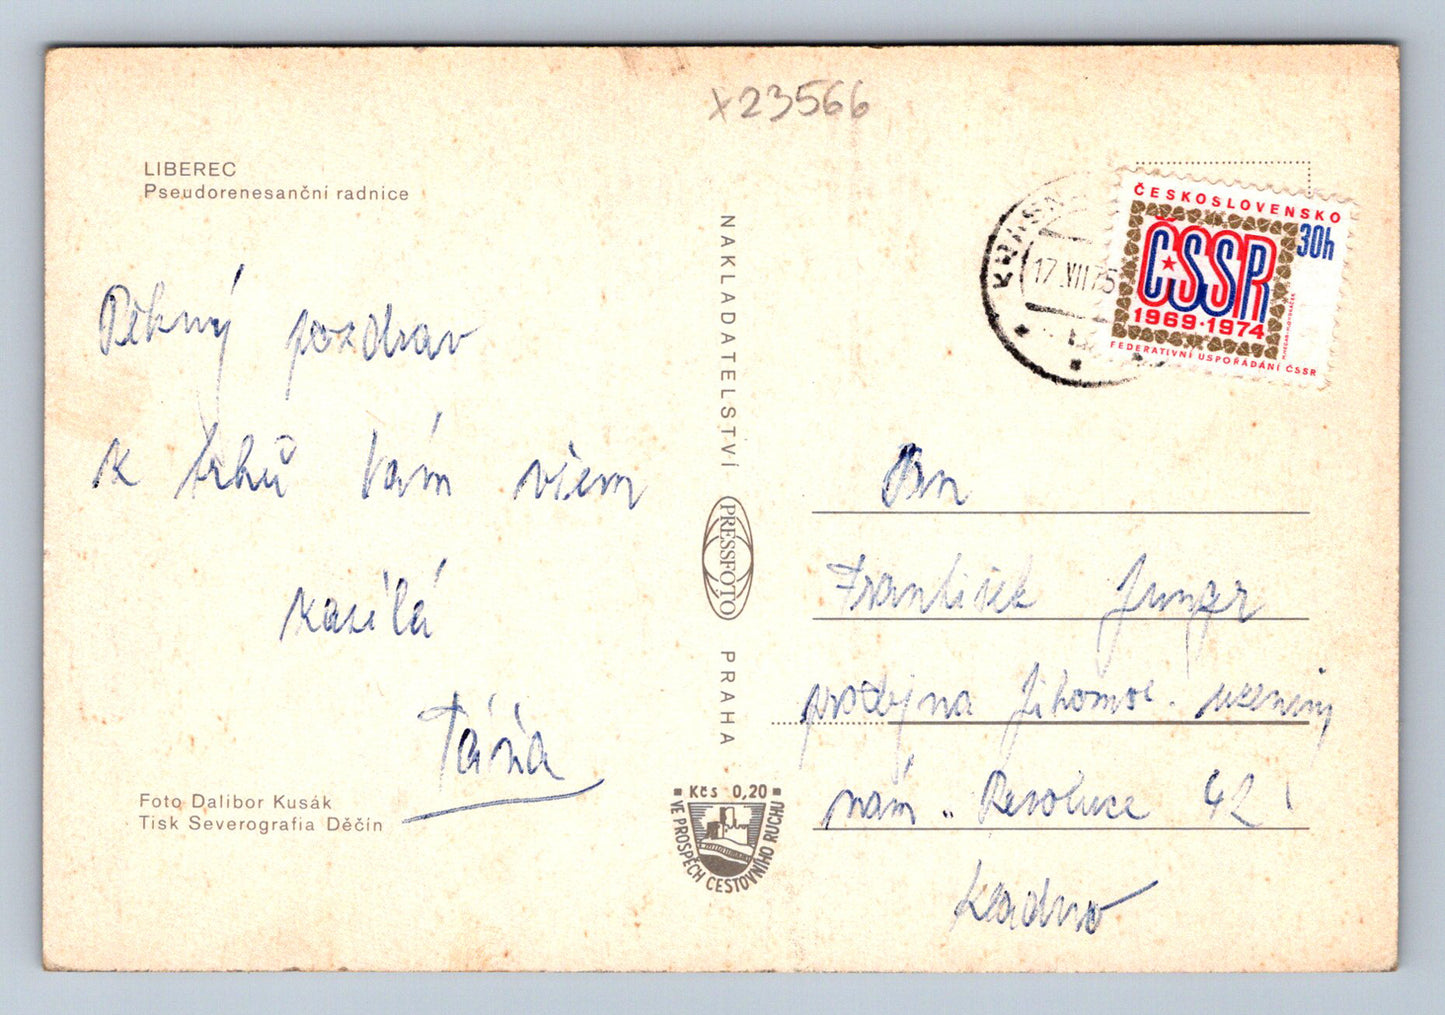 x23566
LIBEREC
Pseudorenesanční radnice
Pěkný pozdrav
k trhů Vám všem
zasílá
Táňa
Foto Dalibor Kusák
Tisk Severografia Děčín
NAKLADATELSTVÍ
PRESSFOTO
PRAHA
Kčs 0,20
VE PROSPĚCH CESTOVNÍHO RUCHU
17.VII.75
ČESKOSLOVENSKO
30h
ČSSR
1969·1974
FEDERATIVNÍ USPOŘÁDÁNÍ ČSSR
Pan
František
prodejna Jihomor. uzeniny
nám. Revoluce 42
Kladno